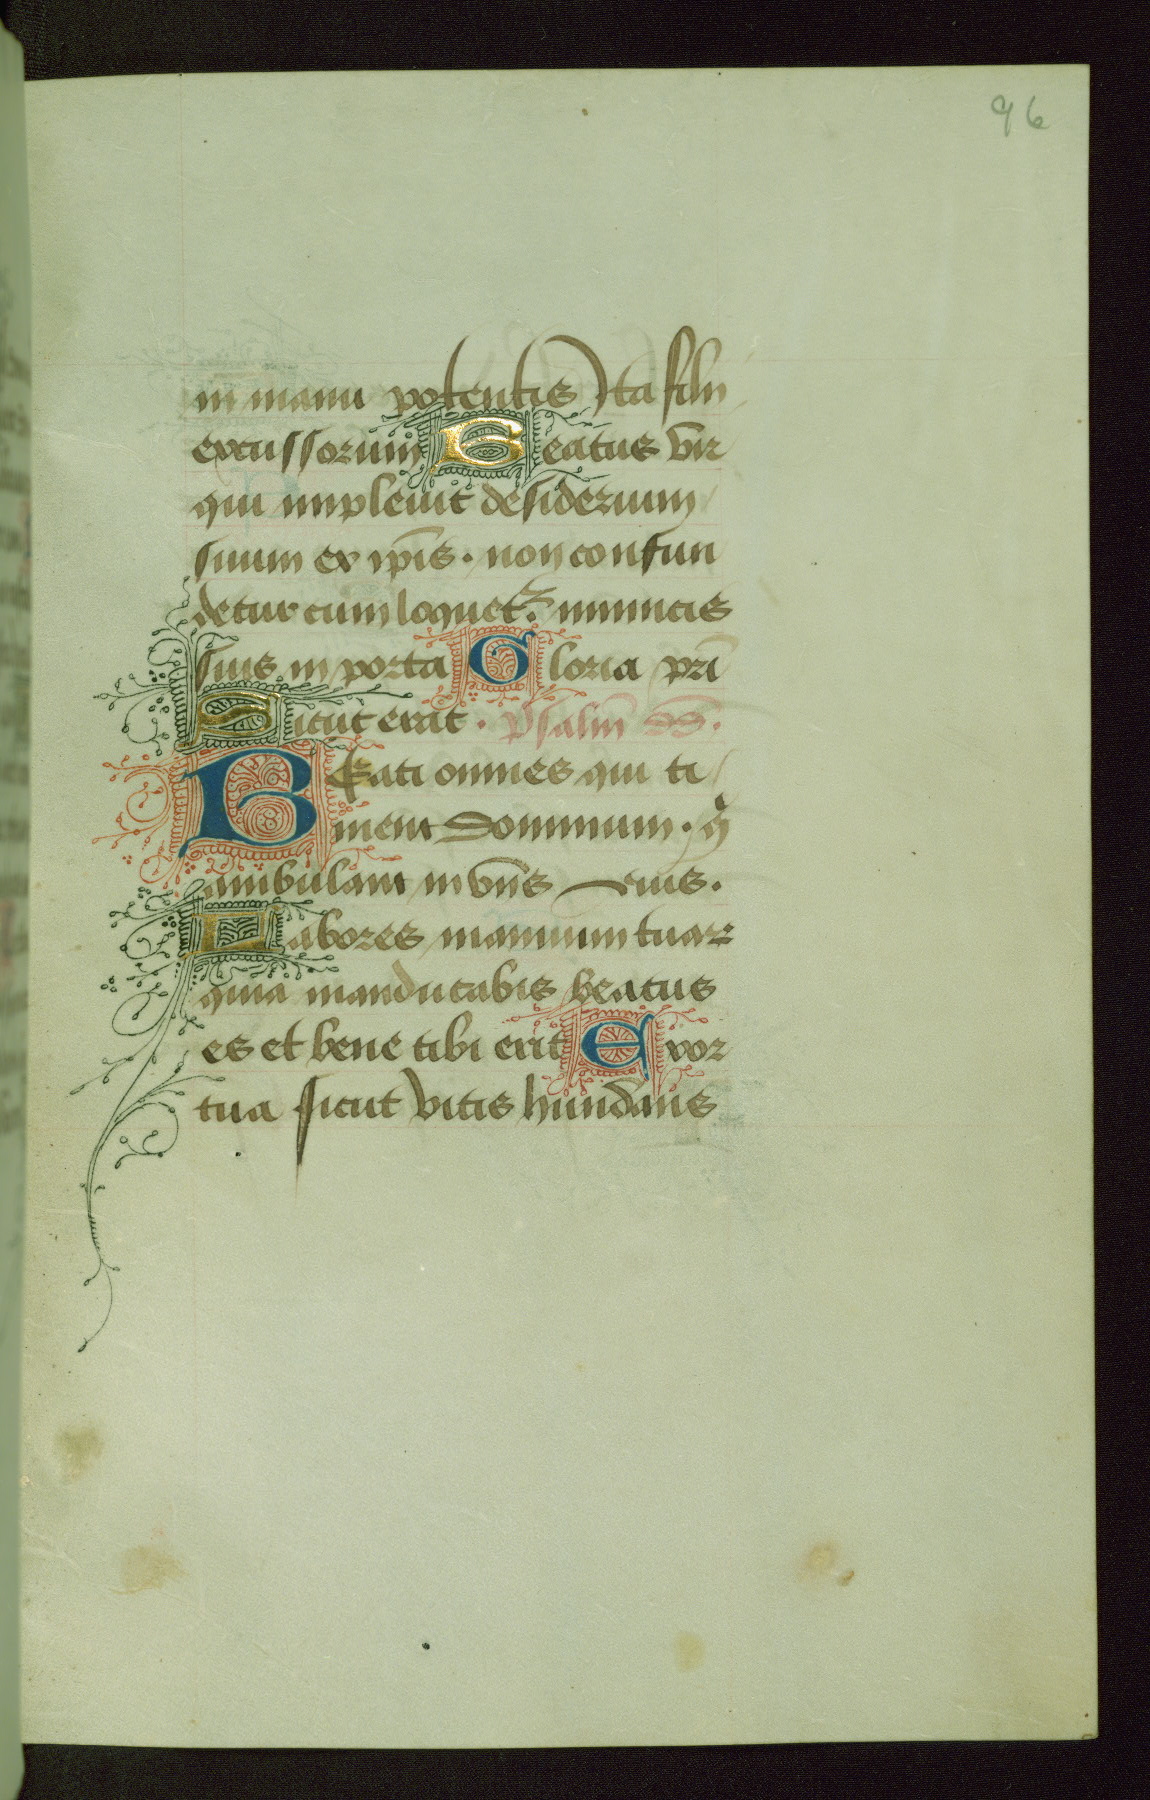 96
in manu potentis Ita filii
excussorum Beatus vir
qui impleuit desiderium
suum ex ip̄is · non confun
detur cum loquet᷑ inimicis
suis in porta Gloria pr̄i
Sicut erat · Psalm̄ dd̄.
BEati omnes qui ti
ment Dominum · q̄
ambulant in vi̅i̅s eius.
Labores manuum tuaꝝ
quia manducabis beatus
es et bene tibi erit Vxor
tua sicut vitis hund̄ans